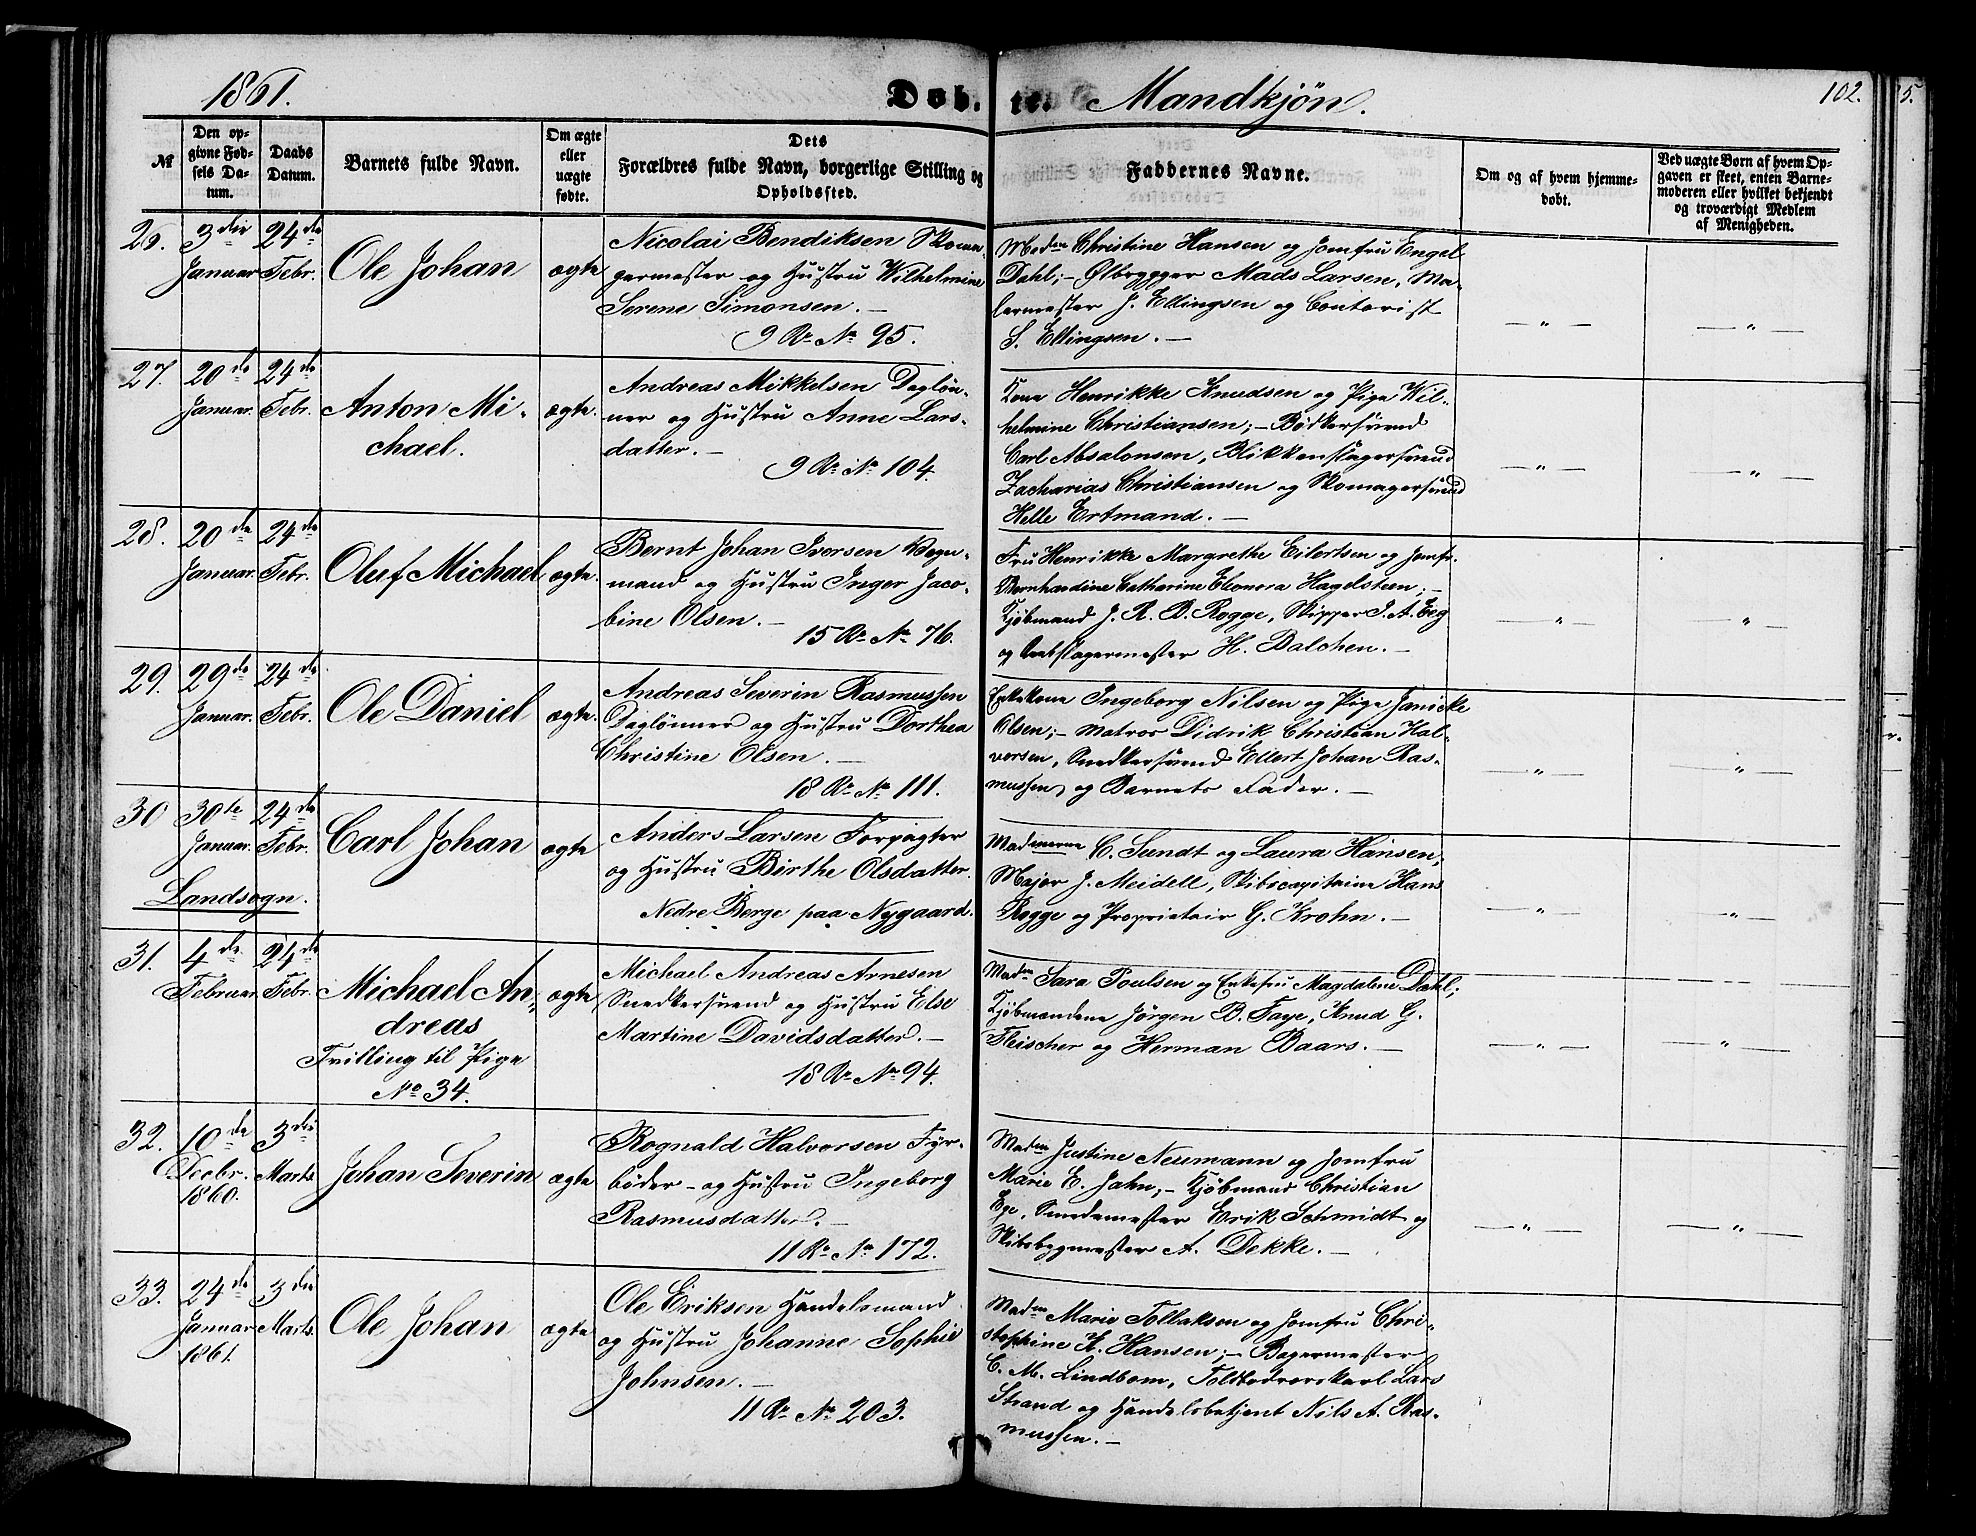 1861.
Døb-te. Mandkjøn.
102.
№
Den op-
givne Fød-
sels Da-
tum.
Daabs
Datum.
Barnets fulde Navn.
Om ægte
eller
uægte
fødte.
Dets
Forældres fulde Navn, borgerlige Stilling og
Opholdssted.
Faddernes Navne.
Om og af hvem hjemme-
døbt.
Ved uægte Børn af hvem Op-
gaven er skeet, enten Barne-
moderen eller hvilket bekjendt
og troværdigt Medlem
af Menigheden.
26. 3die 24de
Januar Febr.
Ole Johan
ægte
Nicolai Bendiksen Skoma-
germester og Hustru Wilhelmine
Serene Simonsen. –
9 R. No 95.
Madm Christine Hansen og Jomfru Engel
Dahl; – Ølbrygger Mads Larsen, Ma-
lermester J. Ellingsen og Contorist
S. Ellingsen. –
— " —
— " —
27. 20de 24de
Januar. Febr.
Anton Mi-
chael.
ægte.
Andreas Mikkelsen Dagløn-
ner og Hustru Anne Lars-
datter. –
9 R. No 104.
Kone Henrikke Knudsen og Pige Wil-
helmine Christiansen; – Bødkersvend
Carl Absalonsen, Blikkenslagersvend
Zacharias Christiansen og Skomagersvend
Helle Ertmand. –
— " —
— " —
28. 20de 24de
Januar. Febr.
Oluf Michael
ægte.
Bernt Johan Iversen Vogn-
mand og Hustru Inger Jaco-
bine Olsen. –
15 R. No 76.
Fru Henrikke Margrethe Eilertsen og Jomfr.
Bernhardine Catharine Eleonora Hagelsteen; –
Kjøbmand J. R. B. Rogge, Skipper J. A. Eeg
og                 H. Balchen. –
— " —
— " —
29. 29de 24de
Januar. Febr.
Ole Daniel
ægte.
Andreas Severin Rasmussen
Daglønner og Hustru Dorthea
Christine Olsen. –
18 R. No 111.
Enkekone Ingeborg Nilsen og Pige Janicke
Olsen; – Matros Didrik Christian Hal-
vorsen, Snedkersvend Ellert Johan Ras-
mussen og Barnets Fader. –
— " —
— " —
30 30te 24de
Januar. Febr.
Landsogn.
Carl Johan
ægte
Anders Larsen Forpagter
og Hustru Birthe Olsdatter.
Nedre Berge paa Nygaard.
Madmerne C. Sundt og Laura Hansen,
Major J. Meidell, Skibscapitaine Hans
Rogge og Proprietair G. Krohn. –
— " —
— " —
31. 4de 24de
Februar. Febr.
Michael An-
dreas
Tvilling til Pige
No 34.
ægte
Michael Andreas Arnesen
Snedkersvend og Hustru Else
Martine Davidsdatter. –
18 R. No 94.
Madm Sara Poulsen og Enkefru Magdalene Dahl;
Kjøbmændene Jørgen B. Faye, Knud G.
Fleischer og Herman Baars. –
— " —
— " —
32. 10de 3die
Decbr. Marts
1860.
Johan Severin
ægte
Rognald Halvorsen Fyr-
bøder – og Hustru Ingeborg
Rasmusdatter. –
11 R. No 172.
Madm Justine Neumann og Jomfru
Marie E. Jahn; – Kjøbmand Christian
Ege, Smedemester Erik Schmidt og
Skibsbygmester A. Dekke. –
— " —
— " —
33. 24de 3die
Januar Marts.
1861.
Ole Johan
ægte
Ole Eriksen Handelsmand
og Hustru Johanne Sophie
Johnsen. –
11 R. No 203.
Madm Marie Tollaksen og Jomfru Chri-
stophine H. Hansen; – Bagermester
C. M. Lindbom, Toldbodroerskarl Lars
Strand og Handelsbetjent Nils A. Ras-
mussen. –